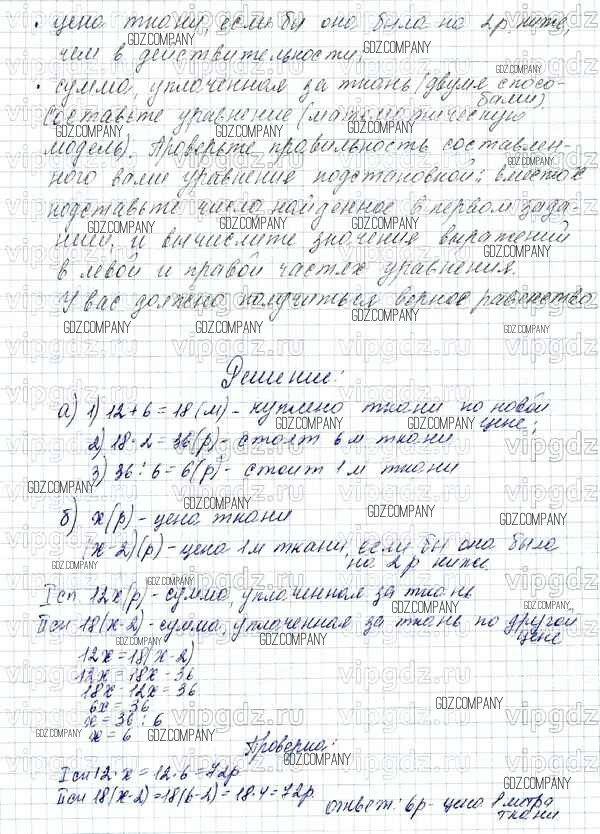 · цена ткани, если бы она была на 2р. ниже,
чем в действительности;
· сумма, уплаченная за ткань (двумя спосо-
бами)
Составьте уравнение (математическую
модель). Проверьте правильность составлен-
ного вами уравнения подстановкой: вместо х
подставьте число, найденное в первом зада-
нии, и вычислите значения выражений
в левой и правой частях уравнения.
У вас должно получиться верное равенство
Решение:
а) 1) 12 + 6 = 18 (м) - куплено ткани по новой
цене;
2) 18 · 2 = 36 (р) - стоят 6 м ткани
3) 36 : 6 = 6 (р) - стоит 1 м ткани
б) х (р) - цена ткани
(х-2) (р) - цена 1 м ткани, если бы она была
на 2 р ниже
I сп 12х (р) - сумма, уплаченная за ткань
II сп 18(х-2) - сумма, уплаченная за ткань по другой
цене
12х = 18(х-2)
12х = 18х - 36
18х - 12х = 36
6х = 36
х = 36 : 6
х = 6
Проверка:
I сп 12·х = 12·6 = 72р
II сп 18(х-2) = 18(6-2) = 18·4 = 72р.
ответ: 6р - цена 1 метра
ткани